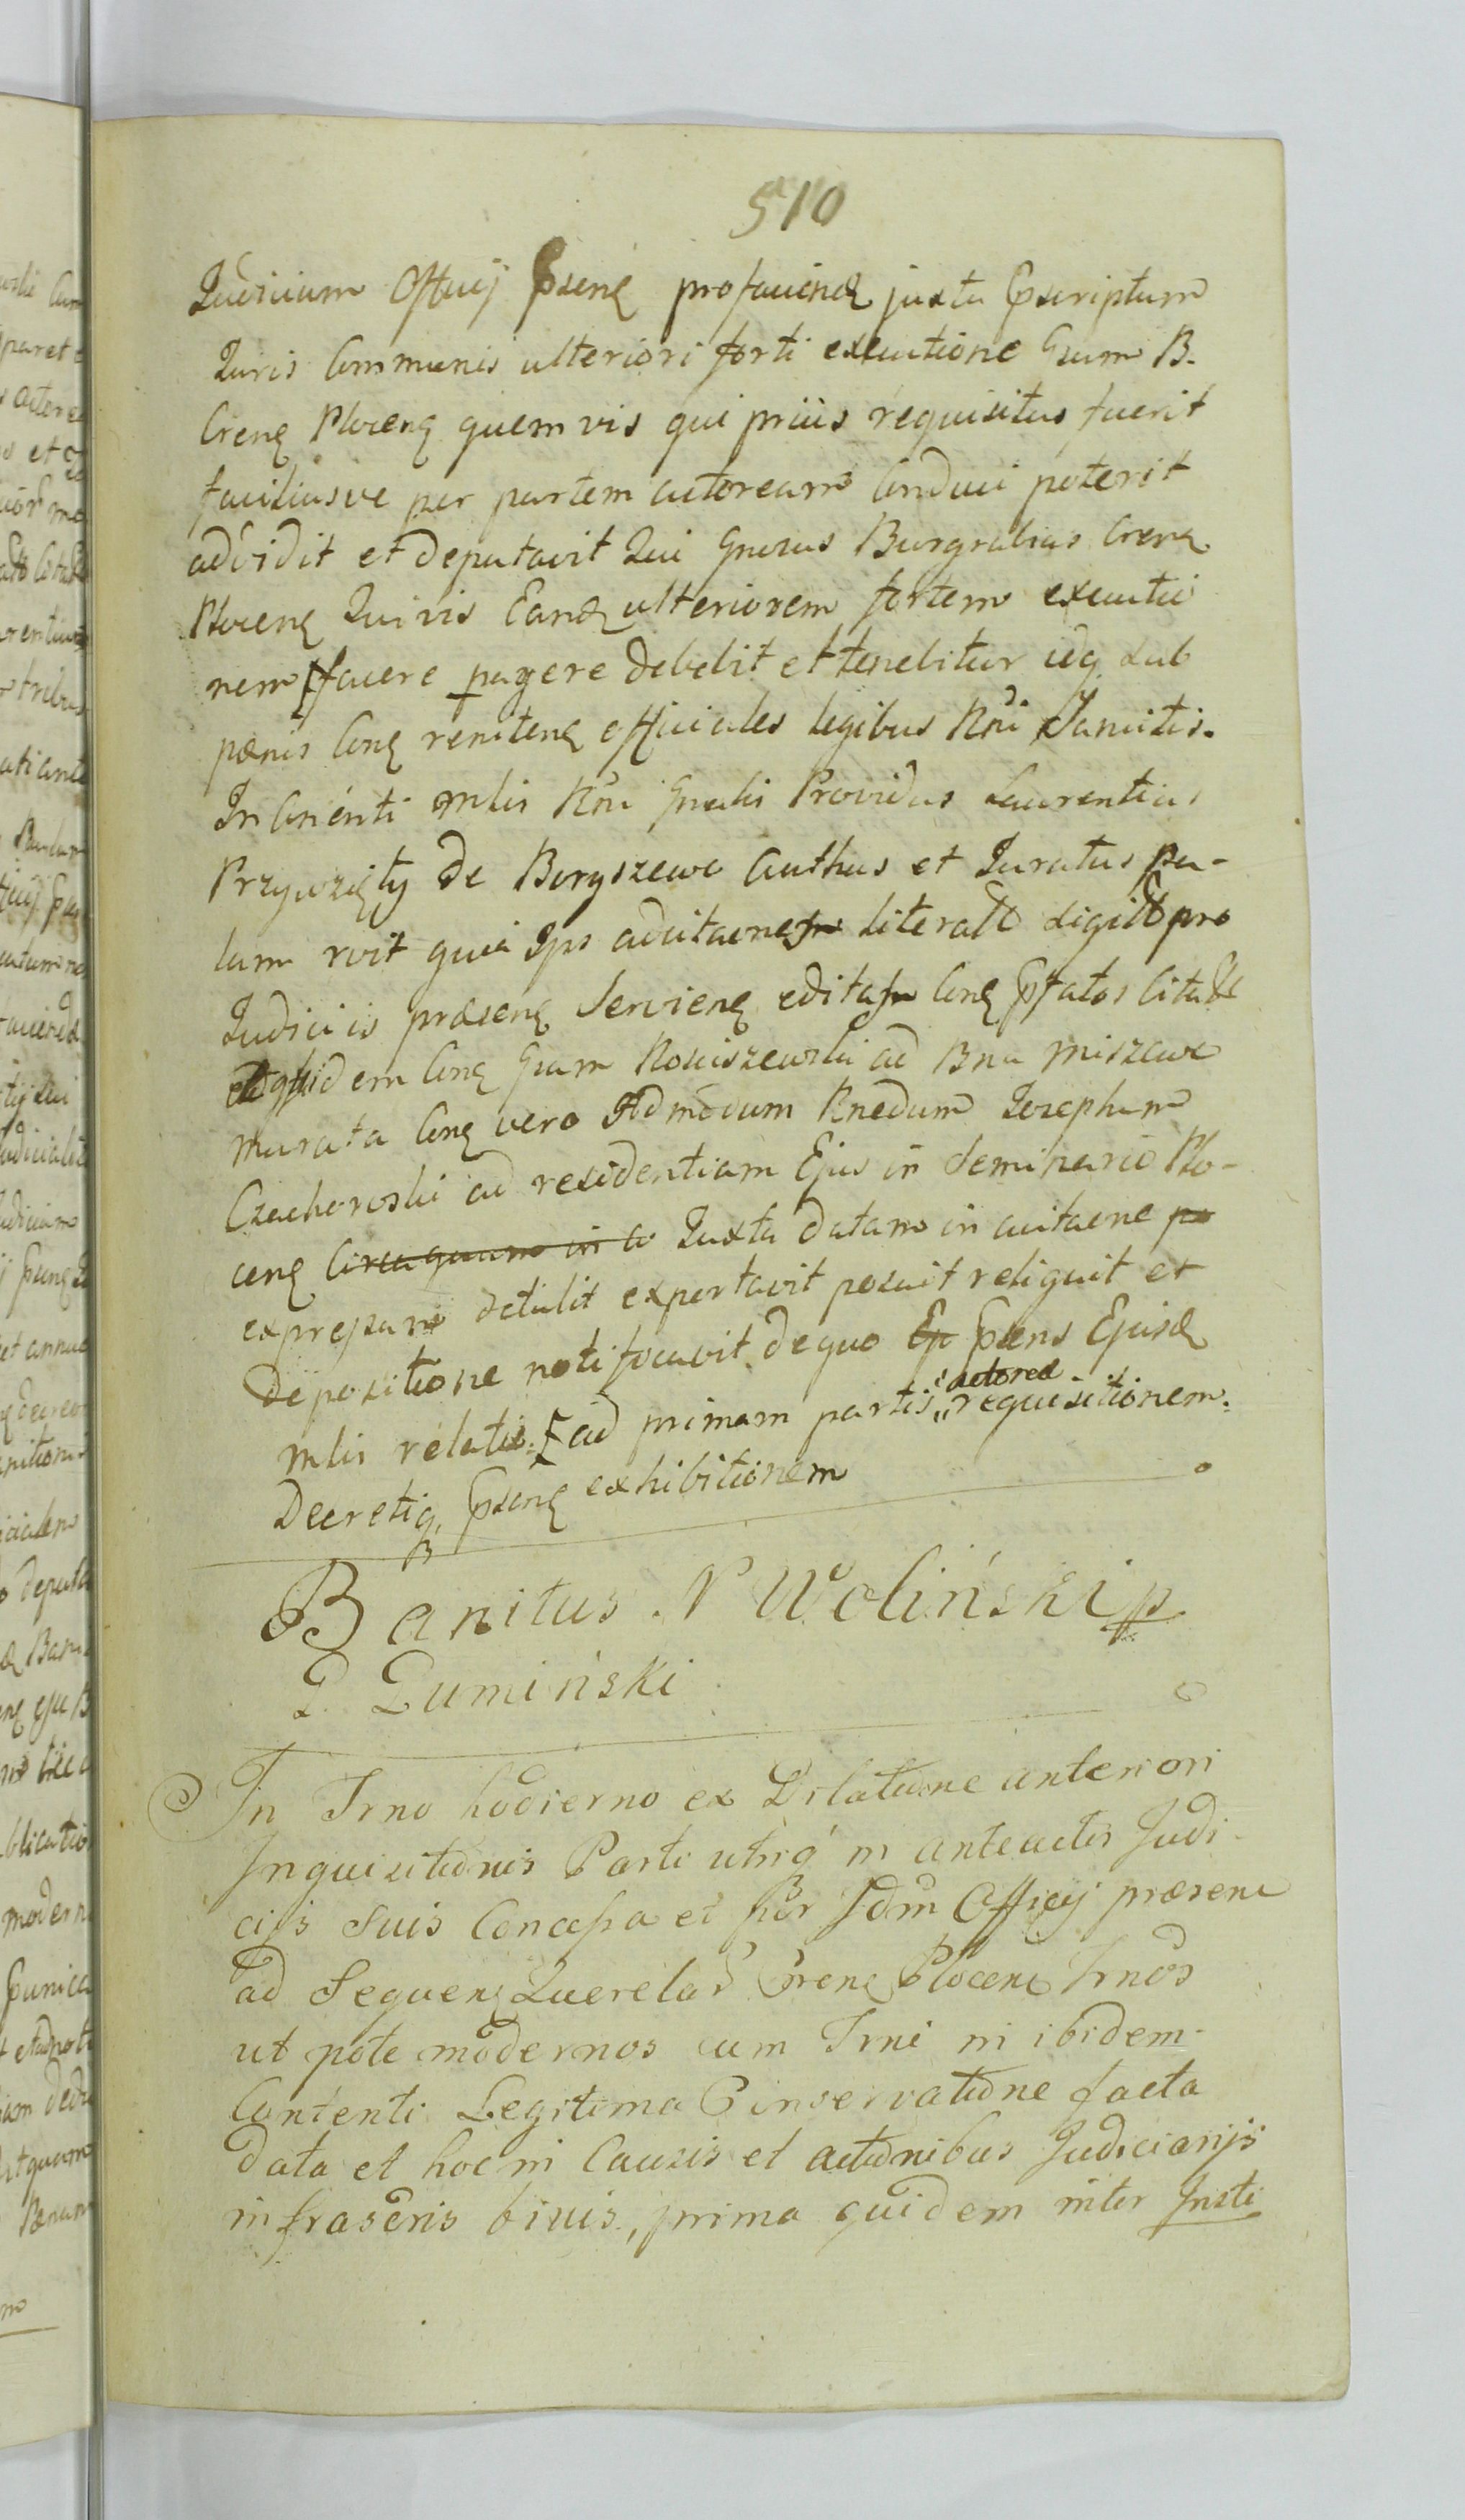 510
Judicium Officij psenę profaciend juxta pscriptum
Juris Communis ulteriori forti executione Gsum B.
Crenę Plocenę quemvis qui prius requisitus fuerit
faciliusve per partem actoream Conduci poterit
addidit et deputavit Qui Gnosus Burgrabius Crenę
Plocenę Quivis Eand ulteriorem fortem executio
nem facere pagere debebit et tenebitur idq sub
pænis Conę renitenę officiales legibus Rni Sancitis.
In Cnenti mlis Rni Gnalis Providus Laurentius
Przywzięty de Boryszewo Authus et Juratus pa-
lam rvit quia Ips adcitaonę literatt sigitt pro
Judiciis præsenę Servienę edita Conę pfatos litatt
et quidem Conę Gsum Rosciszewski ad Bna Miszewo
Murata Conę vero Admodum Rnedum Josephum
Czachorowski ad residentiam Ejus in Seminario Plo-
cenę Circa quam in a Juxta datam in acitaone po
expressam detulit exportavit posuit reliquit et
depositione notificavit de quo Ep psens Ejusd
mlis relatio ad primam partis actorea requisitionem.
Decretiq, psenę exhibitionem
Banitus. N Woliński p
P. Lumiński
In Trno hodierno ex Dilatione anteriori
Inquisitionis Parti utriq in anteactis Judi-
cijs Suis Concessa et per Jdm Officij præsenę
ad Sequenę Querelas Crenę Plocenę Trnos
ut pote modernos cum Trni in ibidem
Contenti Legitima Conservatione facta
data et hoc in Causis et actionibus Judiciarijs
infrascris binis, prima quidem inter Insti